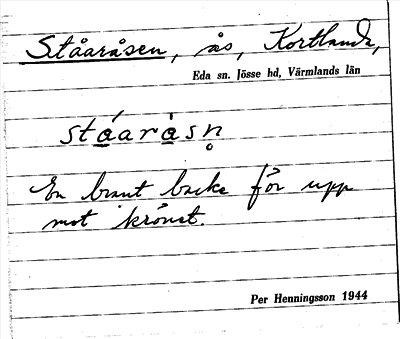 Ståaråsen, ås, Kortlanda,
Eda sn. Jösse hd, Värmlands län
stá̲arà̲sn̥
En brant backe för upp
mot krönet.
Per Henningsson 1944